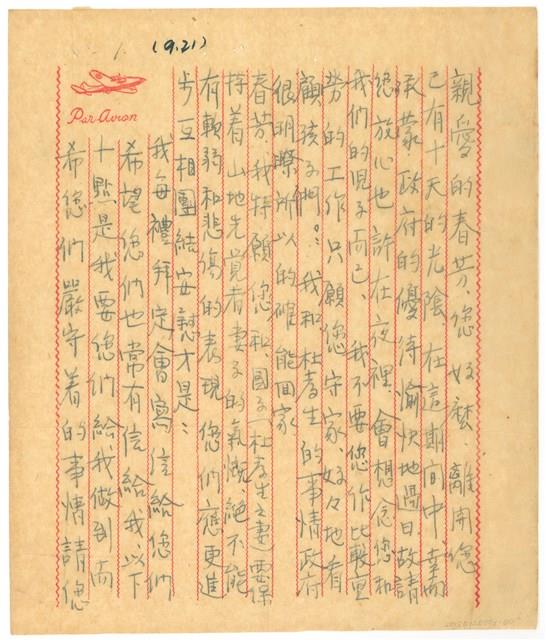 (9.21)
Par Avion
親愛的春芳、您好麼、離開您
已有十天的光陰在這期間中、幸而
承蒙政府的優待愉快地過日故請
您放心也許在夜裡、會想念您和
我們的兒子而已、我不要您作比較重
勞的工作只願您守家、好々地看
顧孩子們。我和杜孝生的事情政府
很明瞭所以的確能回家
春芳、我特願您和國子(杜孝生之妻)要保
持着山地先覺者妻子的氣慨、絕不能
有軟弱和悲傷的表現您們應更進
步互相團結安慰才是:
我每禮拜定會寫信給您們
希望您們也常有信給我以下
十點是我要您們給我做到而
希您們嚴守着的事情請您